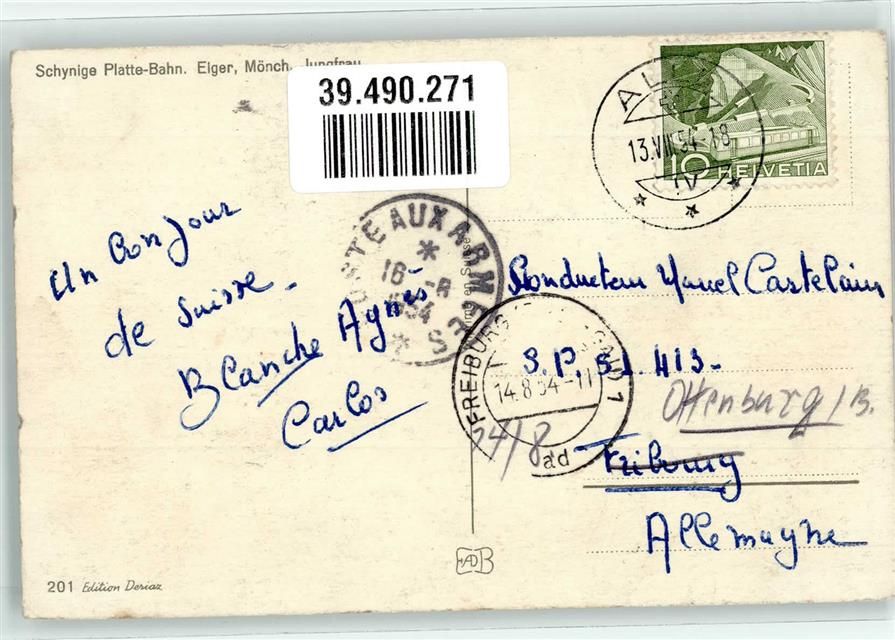 Schynige Platte-Bahn. Eiger, Mönch, Jungfrau
39.490.271
13.VIII.54-18
10 HELVETIA
Un bonjour
de Suisse.
Blanche Agnès
Carlos
POSTE AUX ARMÉES
16 -8
1954
Conducteur Marcel Castelain
S.P. 51.413-
Offenburg/B.
Fribourg
Allemagne
FREIBURG 1
14.8.54-11
24/8
201 Edition Deriaz